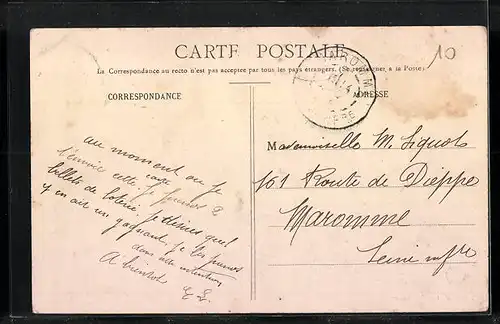 CARTE POSTALE
10
La Correspondance au recto n'est pas acceptee par tous les pays étrangers. (Se renseigner a la Poste)
CORRESPONDANCE
ADRESSE
au moment ou je
t'envoie cette carte, je prends 2
billets de loterie. Je désires quel
y en ait un gagnant, je les prends
dans cette intention
A bientot
Mademoiselle M. Liquois
161 Route de Dieppe
Maromme
Seine infre